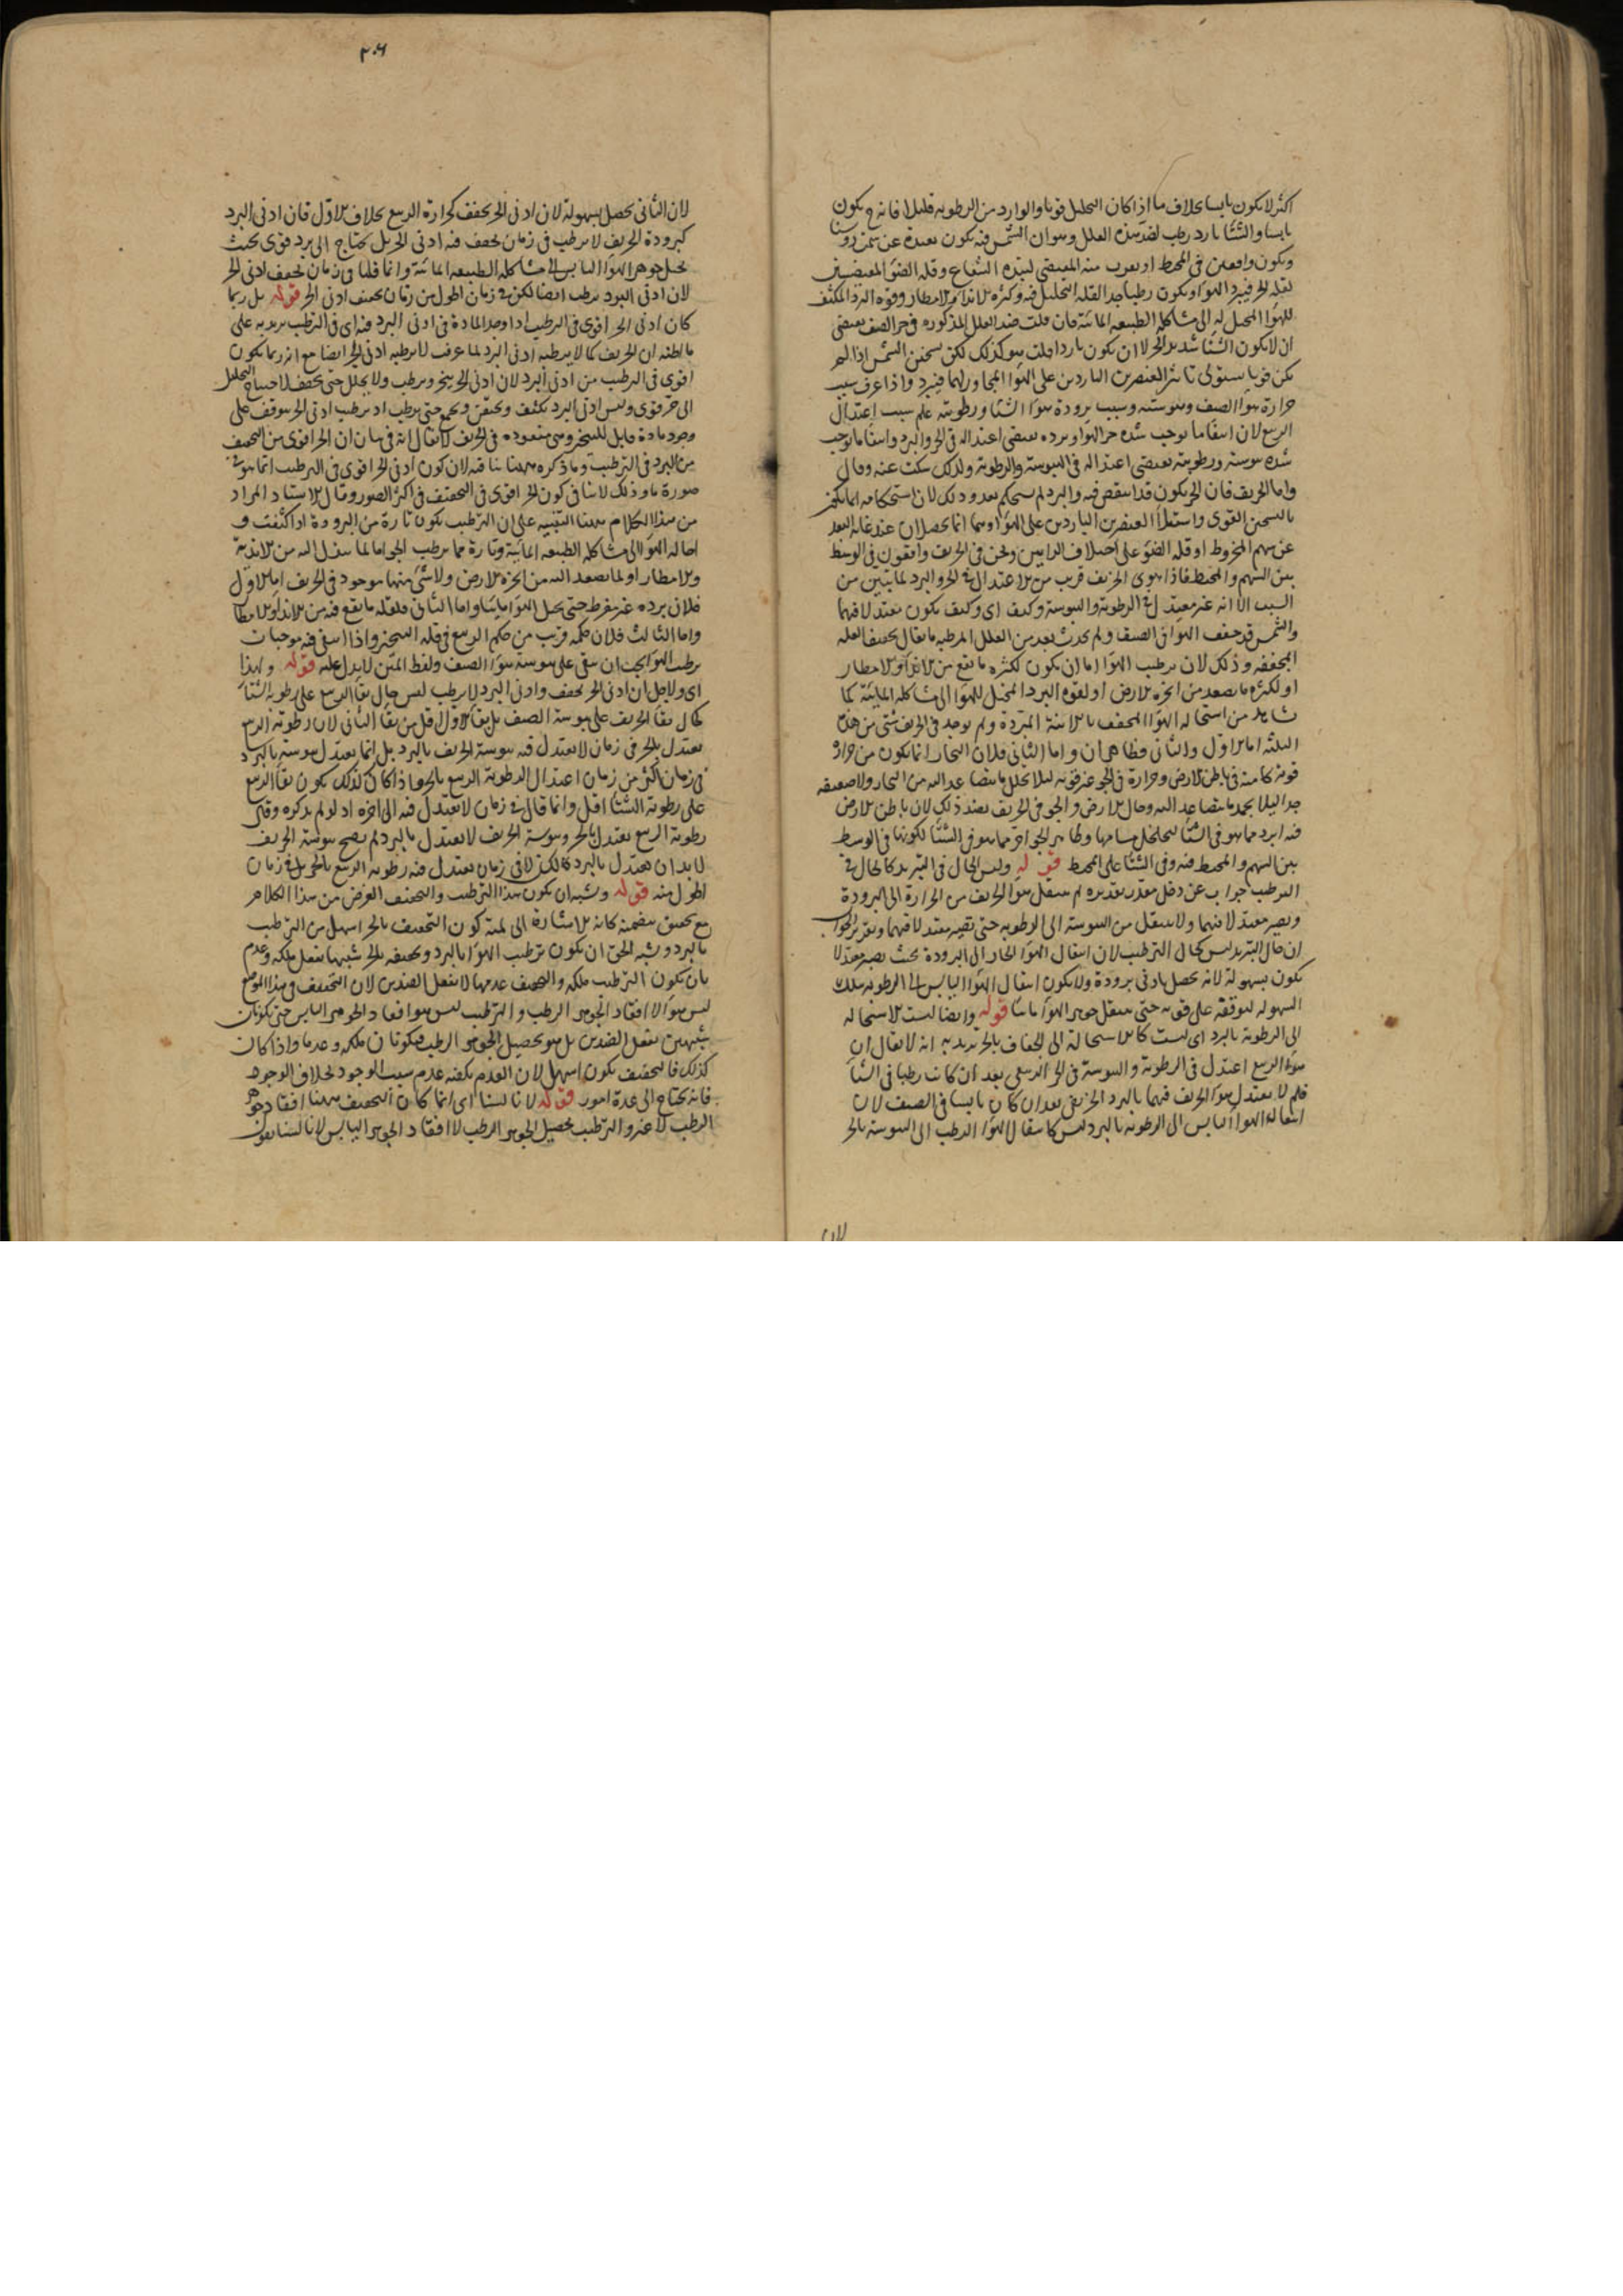 اكثر لا يكون يابسا بخلاف ما اذا كان التحليل قويا والوارد من الرطوبه قليلا فانه ح يكون
يابسا والشتا بارد رطب لضد هذه العلل وهو ان الشمس فيه يكون بعيدة عن سمت روسنا
ويكون واقعين فى المحيط او بقرب منه المقتضى لتبدد الشعاع وقله الضوء المقتضيين
لقله الحر فيبرد الهوا ويكون رطبا جدا لقله التحليل فيه وكثره الاندا والامطار وقوه البرد المكثف
للهوا المحيل له الى مشاكله الطبيعه المائيه فان قلت ضد العلل المذكوره فى حر الصيف يقتضى
ان لا يكون الشتا شديد الحر لا ان يكون باردا قلت هو كذلك لكن تسخين الشمس اذا لم
يكن قويا يستولى تاثير العنصرين الباردين على الهوا المجاور لهما فيبرد واذا عرف سبب
حرارة هوا الصيف ويبوسته وسبب برودة هوا الشتا ورطوبته علم سبب اعتدال
الربيع لان انتفا ما يوجب شده حر الهوا وبرده يقتضى اعتداله فى الحر والبرد وانتفا ما يوجب
شده يبوسته ورطوبته يقتضى اعتداله فى اليبوسة والرطوبة ولذلك سكت عنه وقال
واما الخريف فان الحر يكون قد انتقص فيه والبرد لم يستحكم بعد وذلك لان استحكامه انما يكون
بالتسخين القوى واستيلا العنصرين الباردين على الهوا وهما انما يحصلان عند غايه البعد
عن سهم المخروط او قله الضوء على اختلاف الرايين ونحن فى الخريف واقعون فى الوسط
بين السهم والمحيط فاذا هوى الخريف قريب من الاعتدال فى الحر والبرد لما يتبين من
السبب الا انه غير معتدل فى الرطوبة واليبوسة وكيف اى وكيف يكون معتدلا فيهما
والشمس قد جفف الهوا فى الصيف ولم يحدث بعد من العلل المرطبه ما يقابل تجفيف العله
المجففه وذلك لان ترطيب الهوا اما ان يكون لكثره ما يقع من الاندا والامطار
او لكثره ما يصعد من ابخره الارض او لقوه البرد المحيل للهوا الى مشاكله المائية كما
نشاهد من استحاله الهوا المجفف بالانية المبردة ولم يوجد فى الخريف شئ من هذه
الثلثه اما الاول والثانى فظاهران واما الثانى فلان البخار انما يكون من حرارة
قوية كامنة فى باطن الارض وحرارة فى الجو غير قويه ليلا يحلل ما يتصاعد اليه من البخار ولا ضعيفه
جدا ليلا يجمد ما يتصاعد اليه وحال الارض والجو فى الخريف بضد ذلك لان باطن الارض
فيه ابرد مما هو فى الشتا لتخلخل مسامها وظاهر الجو احر مما هو فى الشتا لكونها فى الوسط
بين السهم والمحيط فيه وفى الشتا على المحيط قوله وليس الحال فى التبريد كالحال فى
الترطيب جواب عن دخل مقدر تقديره لم ينتقل هوا الخريف من الحرارة الى البرودة
ويصير معتدلا فيهما ولا ينتقل من اليبوسة الى الرطوبه حتى يصير معتدلا فيهما وتقرير الجواب
ان حال التبريد ليس كحال الترطيب لان انتقال الهوا الحار الى البرودة بحيث يصير معتدلا
يكون بسهولة لانه يحصل بادنى برودة ولا يكون انتقال الهوا اليابس الى الرطوبه بتلك
السهوله لتوقفه على قويه حتى ينتقل جوهر الهوا مائيا قوله وايضا ليست الاستحاله
الى الرطوبة بالبرد اى ليست كالاستحالة الى الجفاف بالحر يريد به انه لا يقال ان
هوا الربيع اعتدل فى الرطوبة واليبوسة فى الحر الربيعى بعد ان كان رطبا فى الشتا
فلم لا يعتدل هوا الخريف فيهما بالبرد الخريفى بعد ان كان يابسا فى الصيف لان
انتقاله الهوا اليابس الى الرطوبه بالبرد ليس كانتقال الهوا الرطب الى اليبوسة بالحر
لان
٢٠٦
لان الثانى يحصل بسهولة لان ادنى الحر يجفف كحرارة الربيع بخلاف الاول فان ادنى البرد
كبرودة الخريف لا يرطب فى زمان يجفف فيه ادنى الحر بل يحتاج الى برد قوى بحيث
يحيل جوهر الهوا اليابس الى مشاكله الطبيعه المائية وانما قلنا فى زمان يجفف ادنى الحر
لان ادنى البرد يرطب ايضا لكن فى زمان اطول من زمان يجفف ادنى الحر قوله بل ربما
كان ادنى الحر اقوى فى الترطيب اذا وجد المادة من ادنى البرد فيه اى فى الترطيب يريد به على
ما اظنه ان الخريف كما لا يرطبه ادنى البرد لما عرفت لا يرطبه ادنى الحر ايضا مع انه ربما يكون
اقوى فى الترطيب من ادنى البرد لان ادنى الحر يبخر ويرطب ولا يحلل حتى يجفف لاحتياج التحليل
الى حر قوى وليس ادنى البرد يكثف ويحقن ويجمع حتى يرطب اذ ترطيب ادنى الحر موقوف على
وجود مادة قابل للتبخر وهى مفقوده فى الخريف لا يقال انه فى بيان ان الحر اقوى من التجفيف
من البرد فى الترطيب وما ذكره ههنا ينافيه لان كون ادنى الحر اقوى فى الترطيب انما هو فى
صورة ما وذلك لا ينافى كون الحر اقوى فى التجفيف فى اكثر الصور وقال الاستاد المراد
من هذا الكلام ههنا التنبيه على ان الترطيب يكون تارة من البرودة اذا كثفت و
احاله الهوا الى مشاكله الطبيعه المائية وتارة مما يرطب الجو اما لما ينزل اليه من الاندية
والامطار او لما يصعد اليه من ابخره الارض ولا شئ منها موجود فى الخريف اما الاول
فلان برده غير مفرط حتى يحيل الهوا مائيا واما الثانى فلقله ما يقع فيه من الاندا والامطار
واما الثالث فلان حكمه قريب من حكم الربيع فى قله التبخر واذا انتفى فيه موجبات
ترطيب الهوا يجب ان يبقى على يبوسة هوا الصيف ولفظ المتن لا يدل عليه قوله ولهذا
اى ولاجل ان ادنى الحر يجفف وادنى البرد لا يرطب ليس حال بقا الربيع على رطوبة الشتا
كحال بقا الخريف على يبوسة الصيف بل بقا الاول اقل من بقا الثانى لان رطوبة الربيع
يعتدل بالحر فى زمان لا يعتدل فيه يبوسة الخريف بالبرد بل انما يعتدل يبوسته بالبرد
فى زمان اكثر من زمان اعتدال الرطوبة الربيع بالحر واذا كان كذلك يكون بقا الربيع
على رطوبة الشتا اقل وانما قال فى زمان لا يعتدل فيه الى اخره اذ لو لم يذكره وقيل
رطوبة الربيع يعتدل بالحر ويبوسة الخريف لا يعتدل بالبرد لم يصح يبوسة الخريف
لا بد ان يعتدل بالبرد لكن لا فى زمان يعتدل فيه رطوبة الربيع بالحر بل فى زمان
اطول منه قوله ويشبه ان يكون هذا الترطيب والتجفيف الغرض من هذا الكلام
مع تحقيق يتضمنه كانه الاشارة الى لمية كون التجفيف بالحر اسهل من الترطيب
بالبرد ويشبه الحق ان يكون ترطيب الهوا بالبرد وتجفيفه بالحر شبيها بفعل ملكه وعدم
بان يكون الترطيب ملكه والتجفيف عدمها لا بفعل الضدين لان التجفيف فى هذا الموضع
ليس هو الا افقاد الجوهر الرطب والترطيب ليس هو افقاد الجوهر اليابس حتى يكونان
شبيهين بفعل الضدين بل هو تحصيل الجوهر الرطب فيكونان ملكه وعدما واذا كان
كذلك فالتجفيف يكون اسهل لان العدم يكفيه عدم سبب الوجود بخلاف الوجود
فانه يحتاج الى عدة امور قوله لانا لسنا اى انما كان التجفيف ههنا افقاد جوهر
الرطب لا غير والترطيب تحصيل الجوهر الرطب لا افقاد الجوهر اليابس لانا لسنا نقول